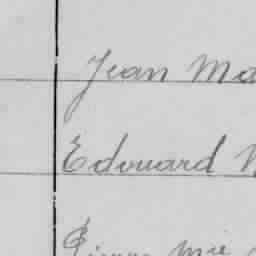 Jean Ma
Edouard
Pierre Mie